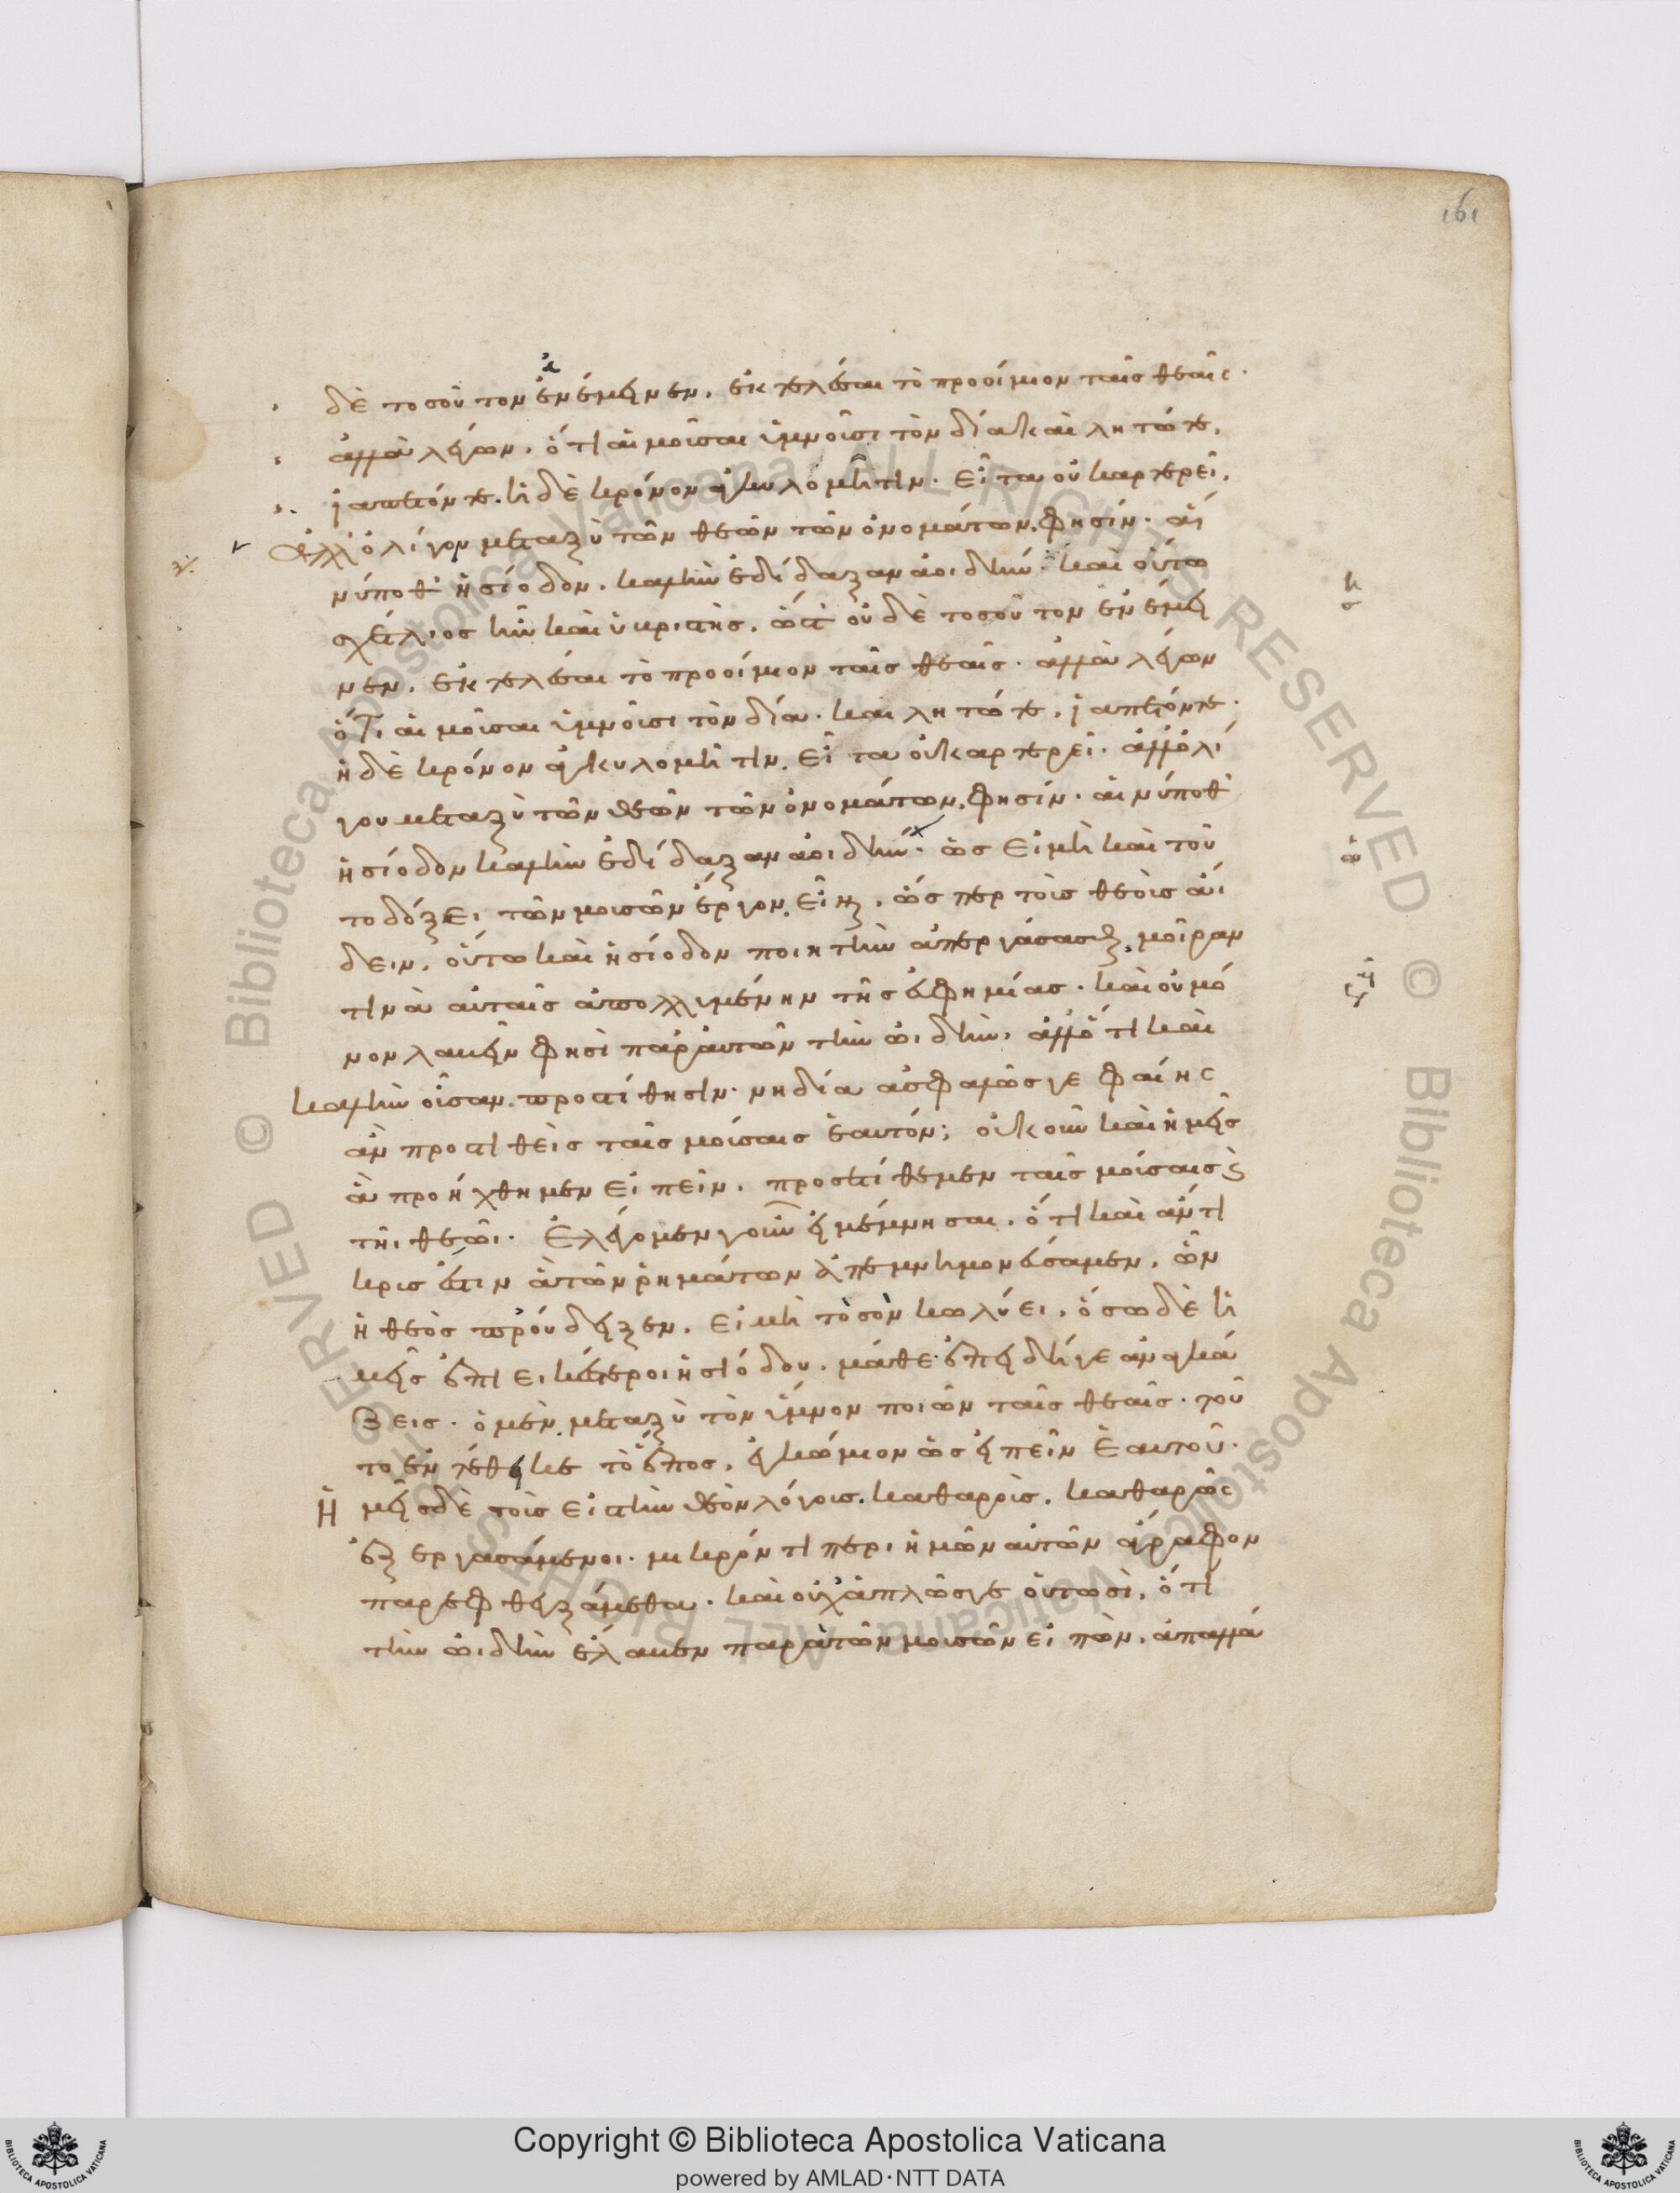 161
δὲ τοσοῦτον ἐνέμεινεν. ἐκτελέσαι τὸ προοίμιον ταῖς θεαῖς.
ἀλλὰ λέγων. ὅτι αἱ μοῦσαι ὑμνοῦσι τὸν δία καὶ λητώ τε.
ἰαπετόν τε. ἠδὲ κρόνον ἀγκυλομήτην. εἶτα οὐ καρτερεῖ.
ἀλλ' ὀλίγον μεταξὺ τῶν θεῶν τῶν ὀνομάτων. φησίν. αἵ
νύ ποθ' ἡσίοδον. καλὴν ἐδίδαξαν ἀοιδήν. καὶ οὕτω
σχέτλιος ἦν καὶ ὑβριστὴς. ὥστ' οὐδὲ τοσοῦτον ἐνέμει
νεν. ἐκτελέσαι τὸ προοίμιον ταῖς θεαῖς. ἀλλὰ λέγων
ὅτι αἱ μοῦσαι ὑμνοῦσι τὸν δία. καὶ λητώ τε. ἰαπετόν τε.
ἠδὲ κρόνον ἀγκυλομήτην. εἶτα οὐ καρτερεῖ. ἀλλ' ὀλί
γου μεταξὺ τῶν θεῶν τῶν ὀνομάτων. φησίν. αἵ νύ ποθ'
ἡσίοδον καλὴν ἐδίδαξαν ἀοιδήν. ὡς εἰ μὴ καὶ τοῦ
το δόξει τῶν μουσῶν ἔργον εἶναι. ὥσπερ τοὺς θεοὺς ᾄ
δειν. οὕτω καὶ ἡσίοδον ποιητὴν ἀπεργάσασθαι, μοῖραν
τινὰ αὐταῖς ἀπολλυμένην τῆς εὐφημίας. καὶ οὐ μό
νον λαβεῖν φησὶ παρ' αὐτῶν τὴν ᾠδὴν, ἀλλ' ὅτι καὶ
καλὴν οὖσαν. προστίθησιν. νὴ δία ἀσφαλῶς γε φαίης
ἂν προστιθεὶς ταῖς μούσαις ἑαυτόν; οὐκοῦν καὶ ἡμεῖς
ἃ προήχθημεν εἰπεῖν. προσετίθεμεν ταῖς μούσαις καὶ
τῇ θεῷ. ἐλέγομεν γοῦν εἰ μέμνησαι. ὅτι καὶ ἀντὶ
κρύς ἐστιν ἃ τῶν ῥημάτων ἀπεμνημονεύσαμεν. ὧν
ἡ θεὸς προὔδειξεν. εἰ μὴ τὸ σὸν κωλύει. ὅσω δὲ ἡ
μεῖς ἐπιεικέστεροι ἡσιόδου. μάθε. ἐπειδή γε ἀναγκά
ζεις. ὁ μὲν μεταξὺ τὸν ὕμνον ποιῶν ταῖς θεαῖς. τοῦ
το ἐντέθεικε τὸ ἔπος. ἐγκώμιον ὡς εἰπεῖν ἑαυτοῦ.
ἡμεῖς δὲ τοὺς εἰς τὴν θεὸν λόγους. καθαροὺς. καθαρῶς
ἐξεργασάμενοι. μικρόν τι περὶ ἡμῶν αὐτῶν ἄγραφον
παρεφθεγξάμεθα. καὶ οὐχ ἁπλῶς γε οὑτωσὶ, ὅτι
τὴν ᾠδὴν ἔλαβεν παρὰ τῶν μουσῶν εἰπὼν. ἀπαλλά
Copyright © Biblioteca Apostolica Vaticana
powered by AMLAD·NTT DATA